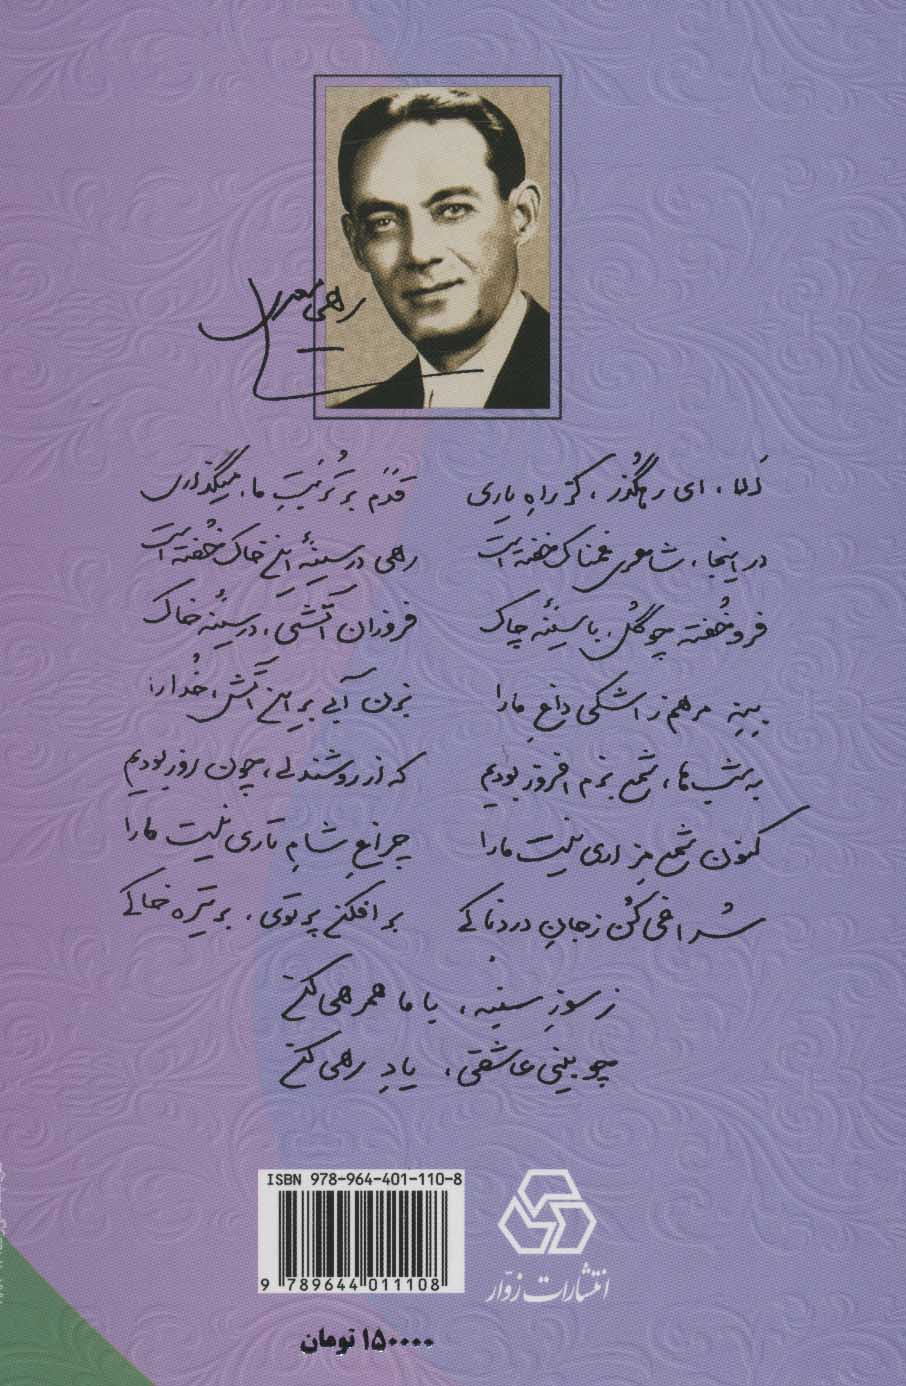 رهی معیری
اَلا، ای رهگُذر، کز راهِ یاری قَدَم بر تُربَتِ ما، میگذاری
در اینجا، شاعری غمناک خفته است رهی در سینهٔ این خاک خُفته است
فرو خُفته چو گُل، با سینهٔ چاک فروزان آتَشی، در سینهٔ خاک
بِنِه مرهم ز اشکی داغِ ما را بزن آبی بر این آتش، خُدا را
به شب ها، شمع بزم افروز بودیم که از روشندلی، چون روز بودیم
کنون شمع مزاری نیست ما را چراغِ شامِ تاری نیست ما را
سُراغی کُن ز جانِ دردناکی برافکن پرتوی، بر تیره خاکی
ز سوزِ سینه، با ما همرهی کن
چو بینی عاشقی، یادِ رهی کن
ISBN 978-964-401-110-8
9 789644 011108
انتشارات زوّار
۱۵۰۰۰۰ تومان